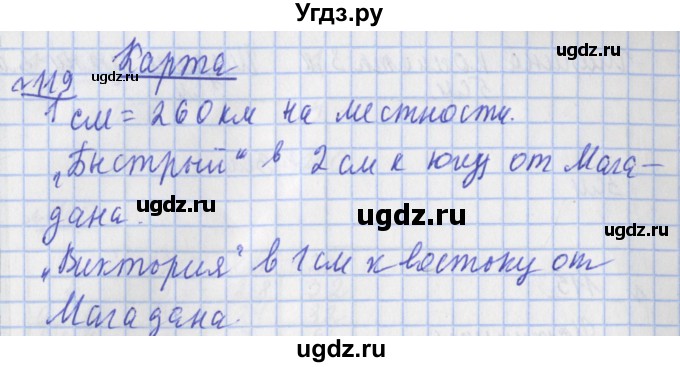 Угдз.ру
ugdz.ru
Карта
ugdz.ru
№119
1 см = 260 км на местности.
ugdz.ru
„Быстрый“ в 2 см к югу от Мага-
ugdz.ru
ugdz.ru
ugdz.ru
дана.
„Виктория“ в 1 см к востоку от
Магадана.
ugdz.ru
ugdz.ru